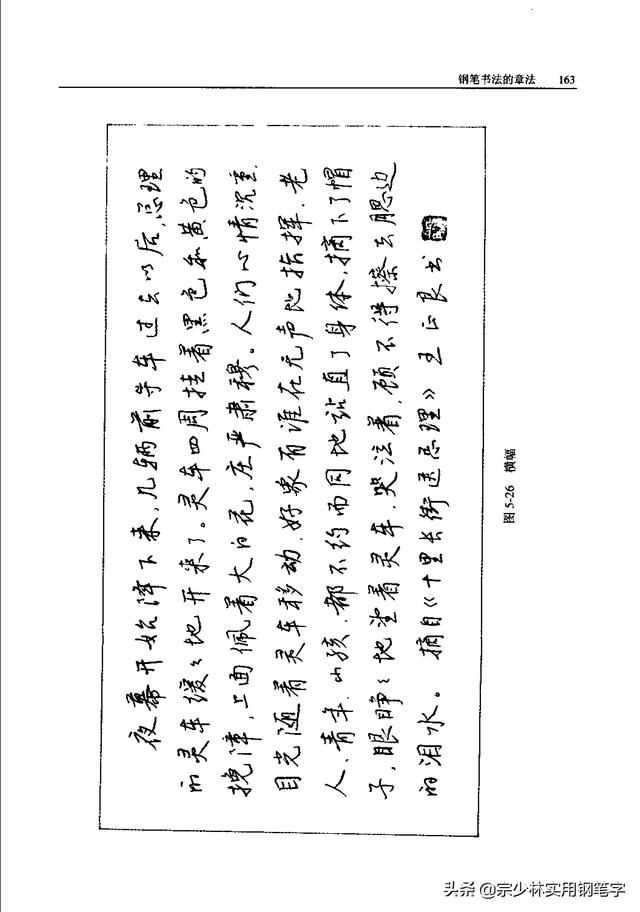 钢笔书法的章法 163
夜幕开始降下来,几辆前导车过去以后,总理
的灵车缓々地开来了。灵车四周挂着黑色和黄色的
挽幛,上面佩着大白花,庄严肃穆。人们心情沉重.
目光随着灵车移动.好象有谁在无声地指挥.老
人.青年.小孩.都不约而同地站直了身体,摘下了帽
子,眼睁々地望着灵车,哭泣着,顾不得擦去腮边
的泪水。 摘自《十里长街送总理》 王正良书
图 5-26 横幅
头条 @宗少林实用钢笔字